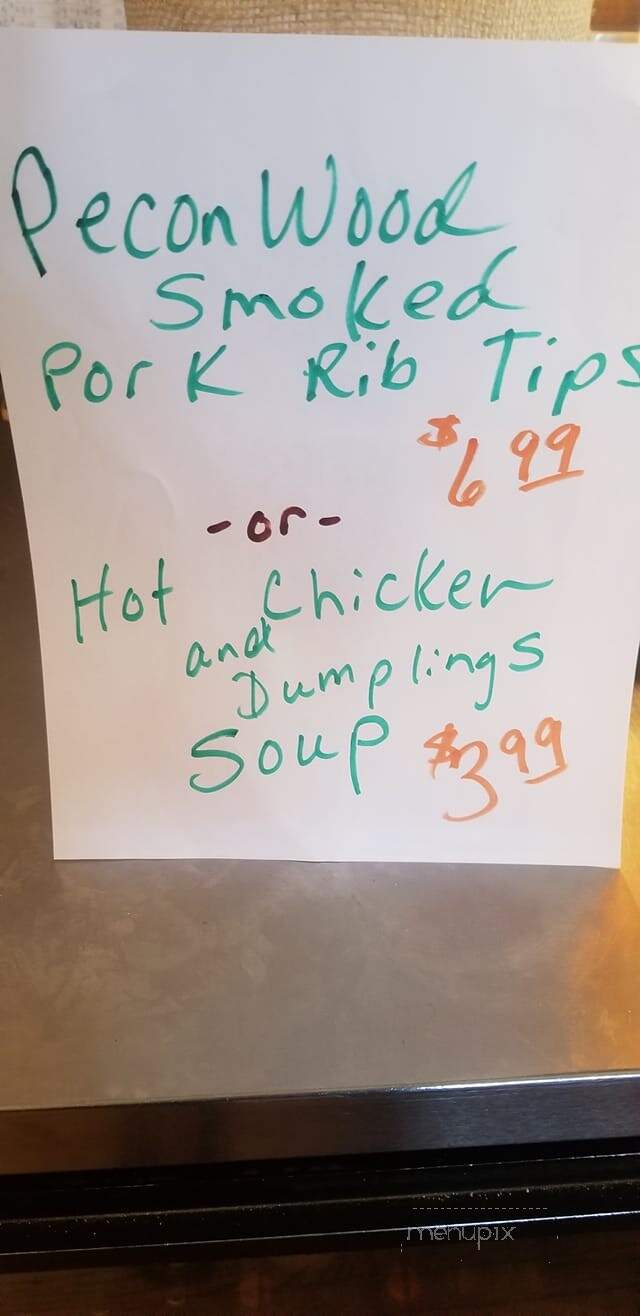 Pecon Wood
Smoked
Pork Rib Tips
$6 99
-or-
Hot Chicken
and
Dumplings
Soup $3 99
menupix